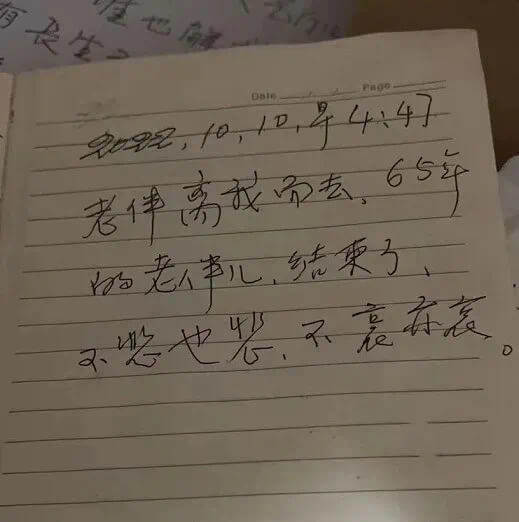 有長生
也解
Date / / Page
2022,10,10,早4:47
老伴离我而去、65年
的老伴儿、结束了、
不悲也悲、不哀亦哀。